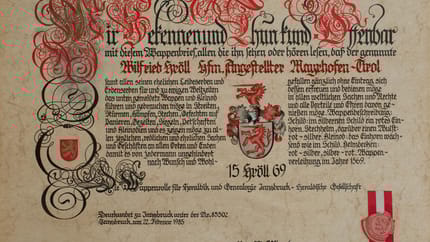 Wir Bekennen und Thun kund Offenbar
mit diesem Wappenbrief, allen die ihn sehen oder hören lesen, daß der genannte
Wilfried Kröll Hfm. Angestellter Mayrhofen-Tirol
samt allen seinen ehelichen Leibeserben und
Erbenserben für und zu ewigen Weltzeiten
das vorher gemeldete Wappen und Kleinod
führen und gebrauchen möge in Streiten,
Stürmen, Kämpfen, Stechen, Gefechten, auf
Banieren, Gezelten, Siegeln, Petschaften
und Kleinodien und es zeigen möge zu
allen möglichen, redlichen und ehrlichen Sachen
und Geschäften an allen Orten und Enden
damit es von Jedermann ungehindert
nach Wunsch und Wohl-
gefallen gänzlich ohne Eintrag, sich
dessen erfreuen und bedienen möge
in allen weltlichen Sachen und Rechte
und alle Vorteile und Ehren davon ge-
nießen möge. Wappenbeschreibung:
Schild: im silbernen Schild ein rotes Ein-
horn. Stechhelm, darüber einen Wulst
rot-silber. Kleinod: das Einhorn wach-
send wie im Schild. Helmdecken:
rot-silber, rot-silber. Wappen-
verleihung im Jahre 1569.
15 Kröll 69
Wappenrolle für Heraldik und Genealogie Innsbruck - Heraldische Gesellschaft
Beurkundet zu Innsbruck unter der No. 83502
Innsbruck, am 22. Februar 1985